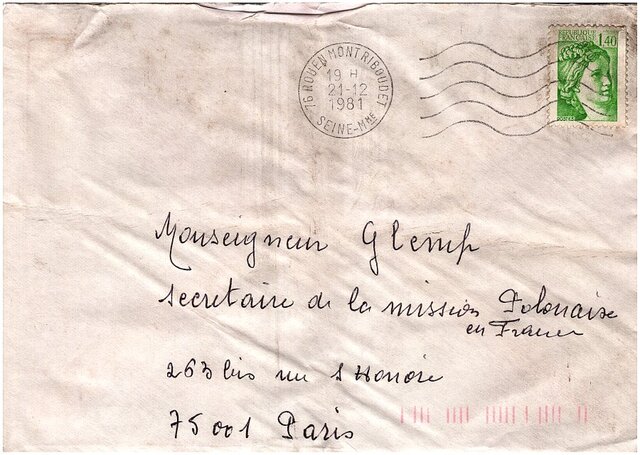 76 ROUEN MONTRIBOUDET
19 H
21-12
1981
SEINE-MME
REPUBLIQUE
FRANÇAISE
1,40
Monseigneur Glemp
secretaire de la mission Polonaise
en France
263 bis rue St Honoré
75001 Paris